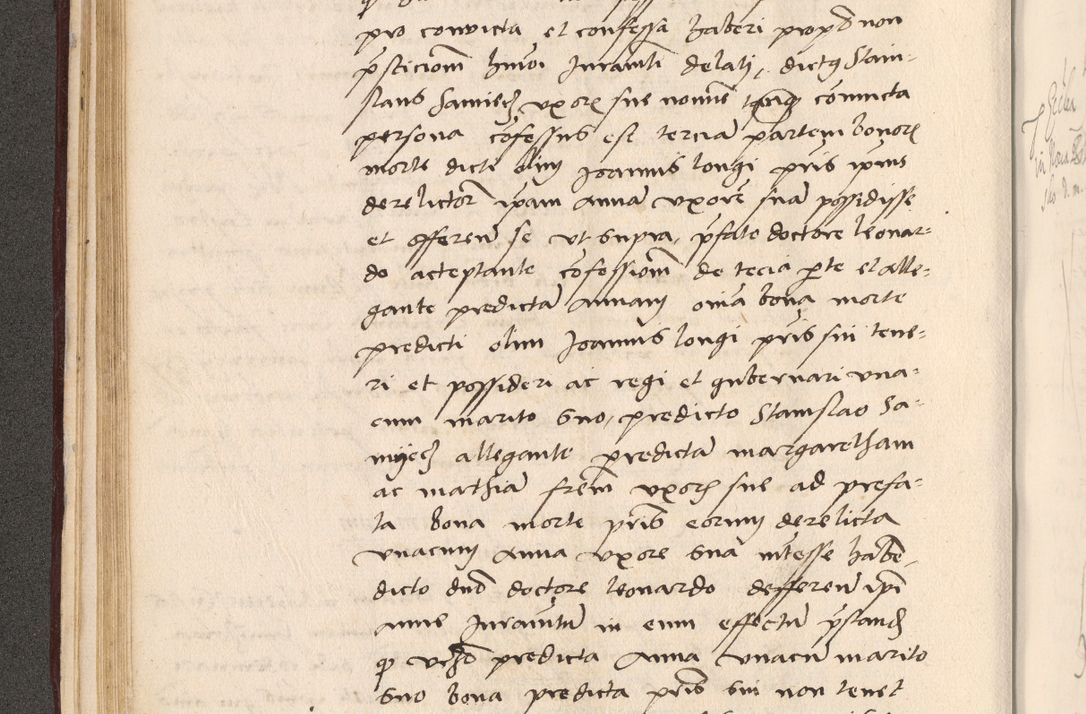 pro convicta et confessa haberi propt non
pśticiom hmōi Juramti delati, dictus Stani-
slaus Samiecz uxoris sue nomine tanq convicta
persona cōfessus est tercia partem bonor
morte dicte olim Joannis longi pris ipius
derelictor ipam Anna uxore sua possidisse
et offeren se ut supra, pfato doctore leonar-
do acceptante cōfessiom de tecia parte et alle-
gante predicta Annam oma bona morte
predicti olim Joannis longi pris sui tene-
ri et possideri ac regi et gubernari una-
cum marito suo, predicto Stanislao Sa-
myecz allegante predicta margaretham
ac mathia frem uxoris sue ad prefa-
ta bona morte pris eorum derelicta
unacum Anna uxore sua intesse haben,
dicto dno doctore leonardo defferen ipi
Anne Juramtu in eum effectu pstand
predicta Anna unacu marito
suo bona predicta pris sui non tenet